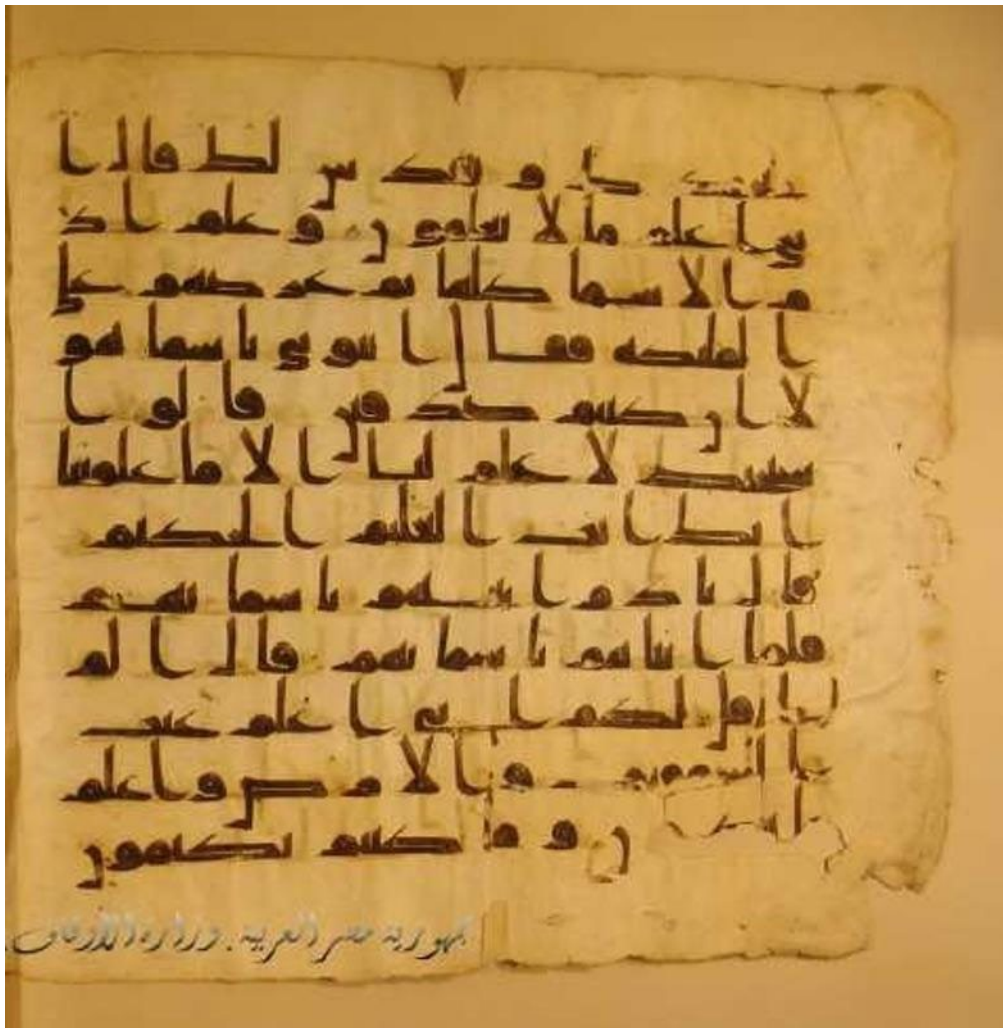 بحمدك و نقدس لك قال ا
ني اعلم ما لا تعلمون و علم اد
م الاسما كلها ثم عرضهم على
الملئكة فقال انبوني باسما هو
لا ان كنتم صدقين قالوا
سبحنك لا علم لنا الا ما علمتنا
انك انت العليم الحكيم
قال يادم انبهم باسمايهم
فلما انباهم باسمايهم قال الم
اقل لكم اني اعلم غيب
السموت و الارض و اعلم
ما تبدون و ما كنتم تكتمون
جمهورية مصر العربية . وزارة الأوقاف